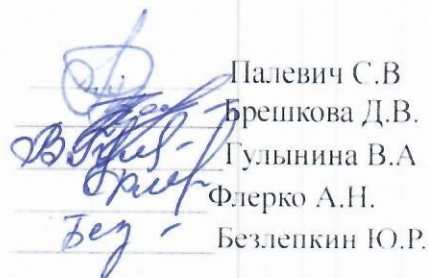 Палевич С.В
Брешкова Д.В.
Гулынина В.А
Флерко А.Н.
Без Безлепкин Ю.Р.